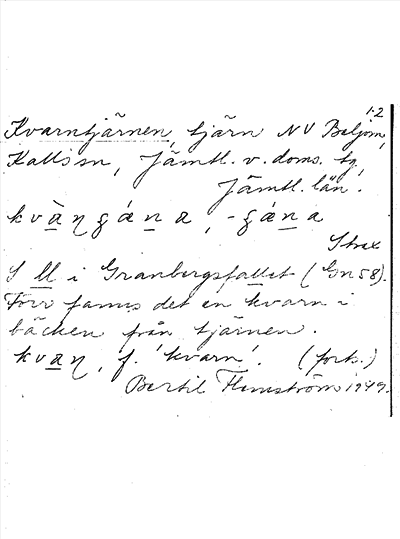 1.2
Kvarntjärnen, tjärn NV Beljom,
Kalls sn, Jämtl. v. doms. tg,
Jämtl. län.
kvàŋgánа, -gánа
Strax
S ll i Granbergsfallet (Gn 58).
Förr fanns det en kvarn i
bäcken från tjärnen.
kvaŋ, f. 'kvarn'. (forts.)
Bertil Flemström 1949.